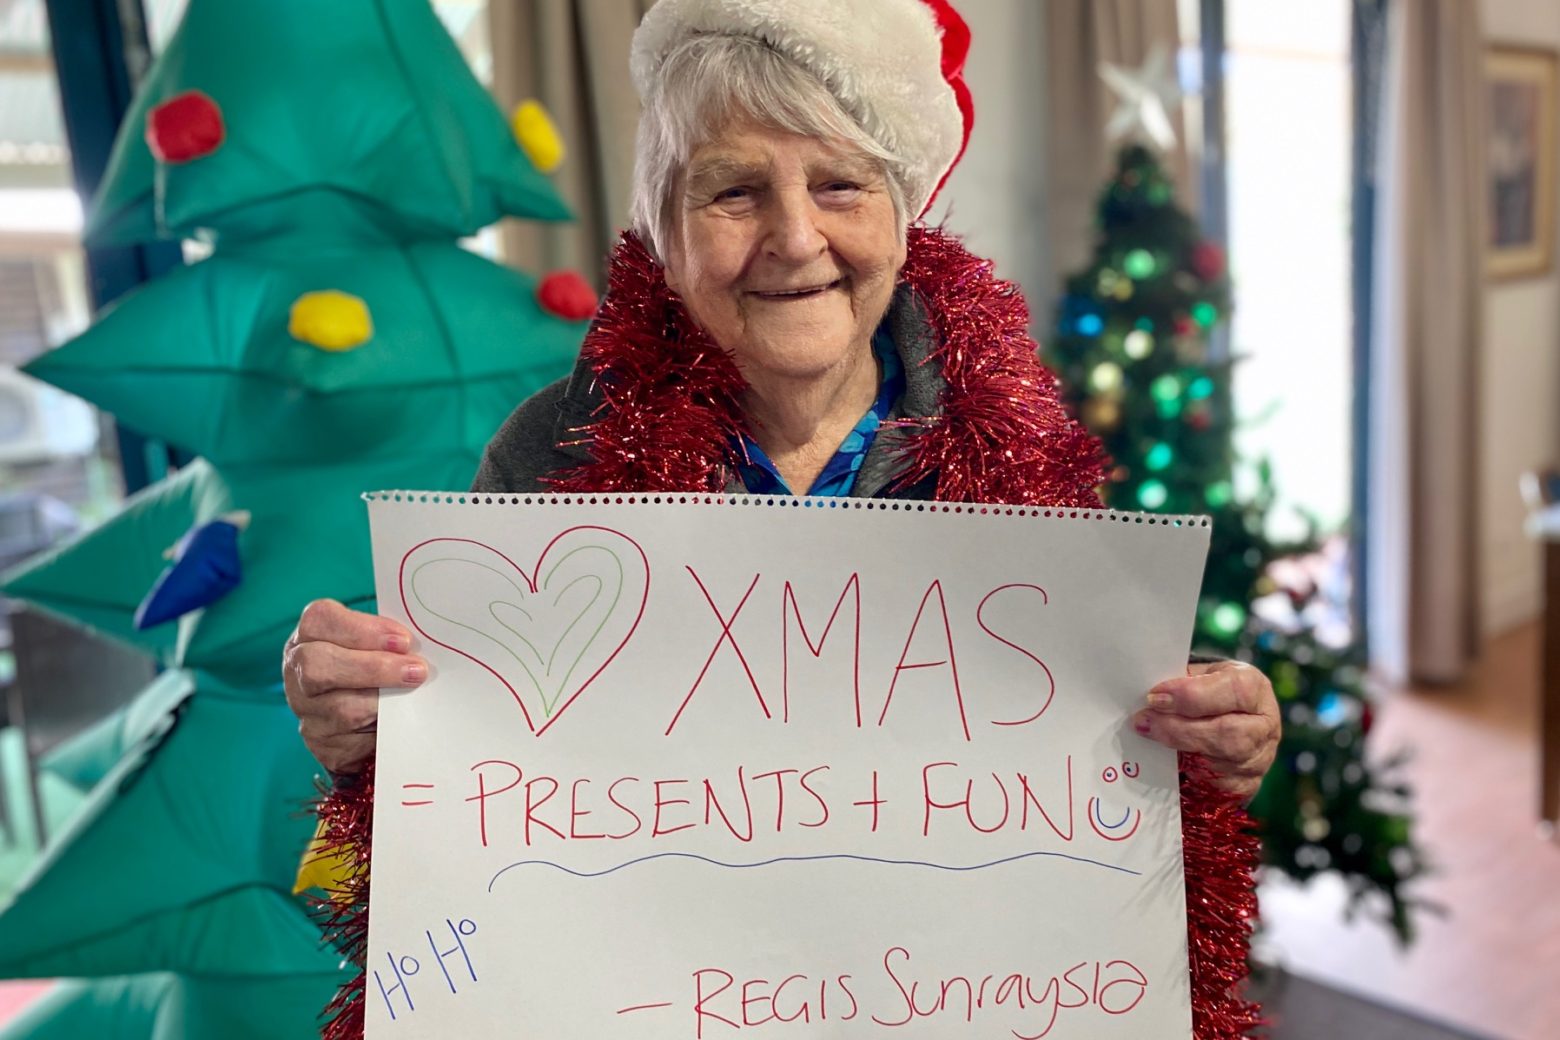 XMAS
= PRESENTS + FUN
Ho Ho
- REGIS Sunraysia